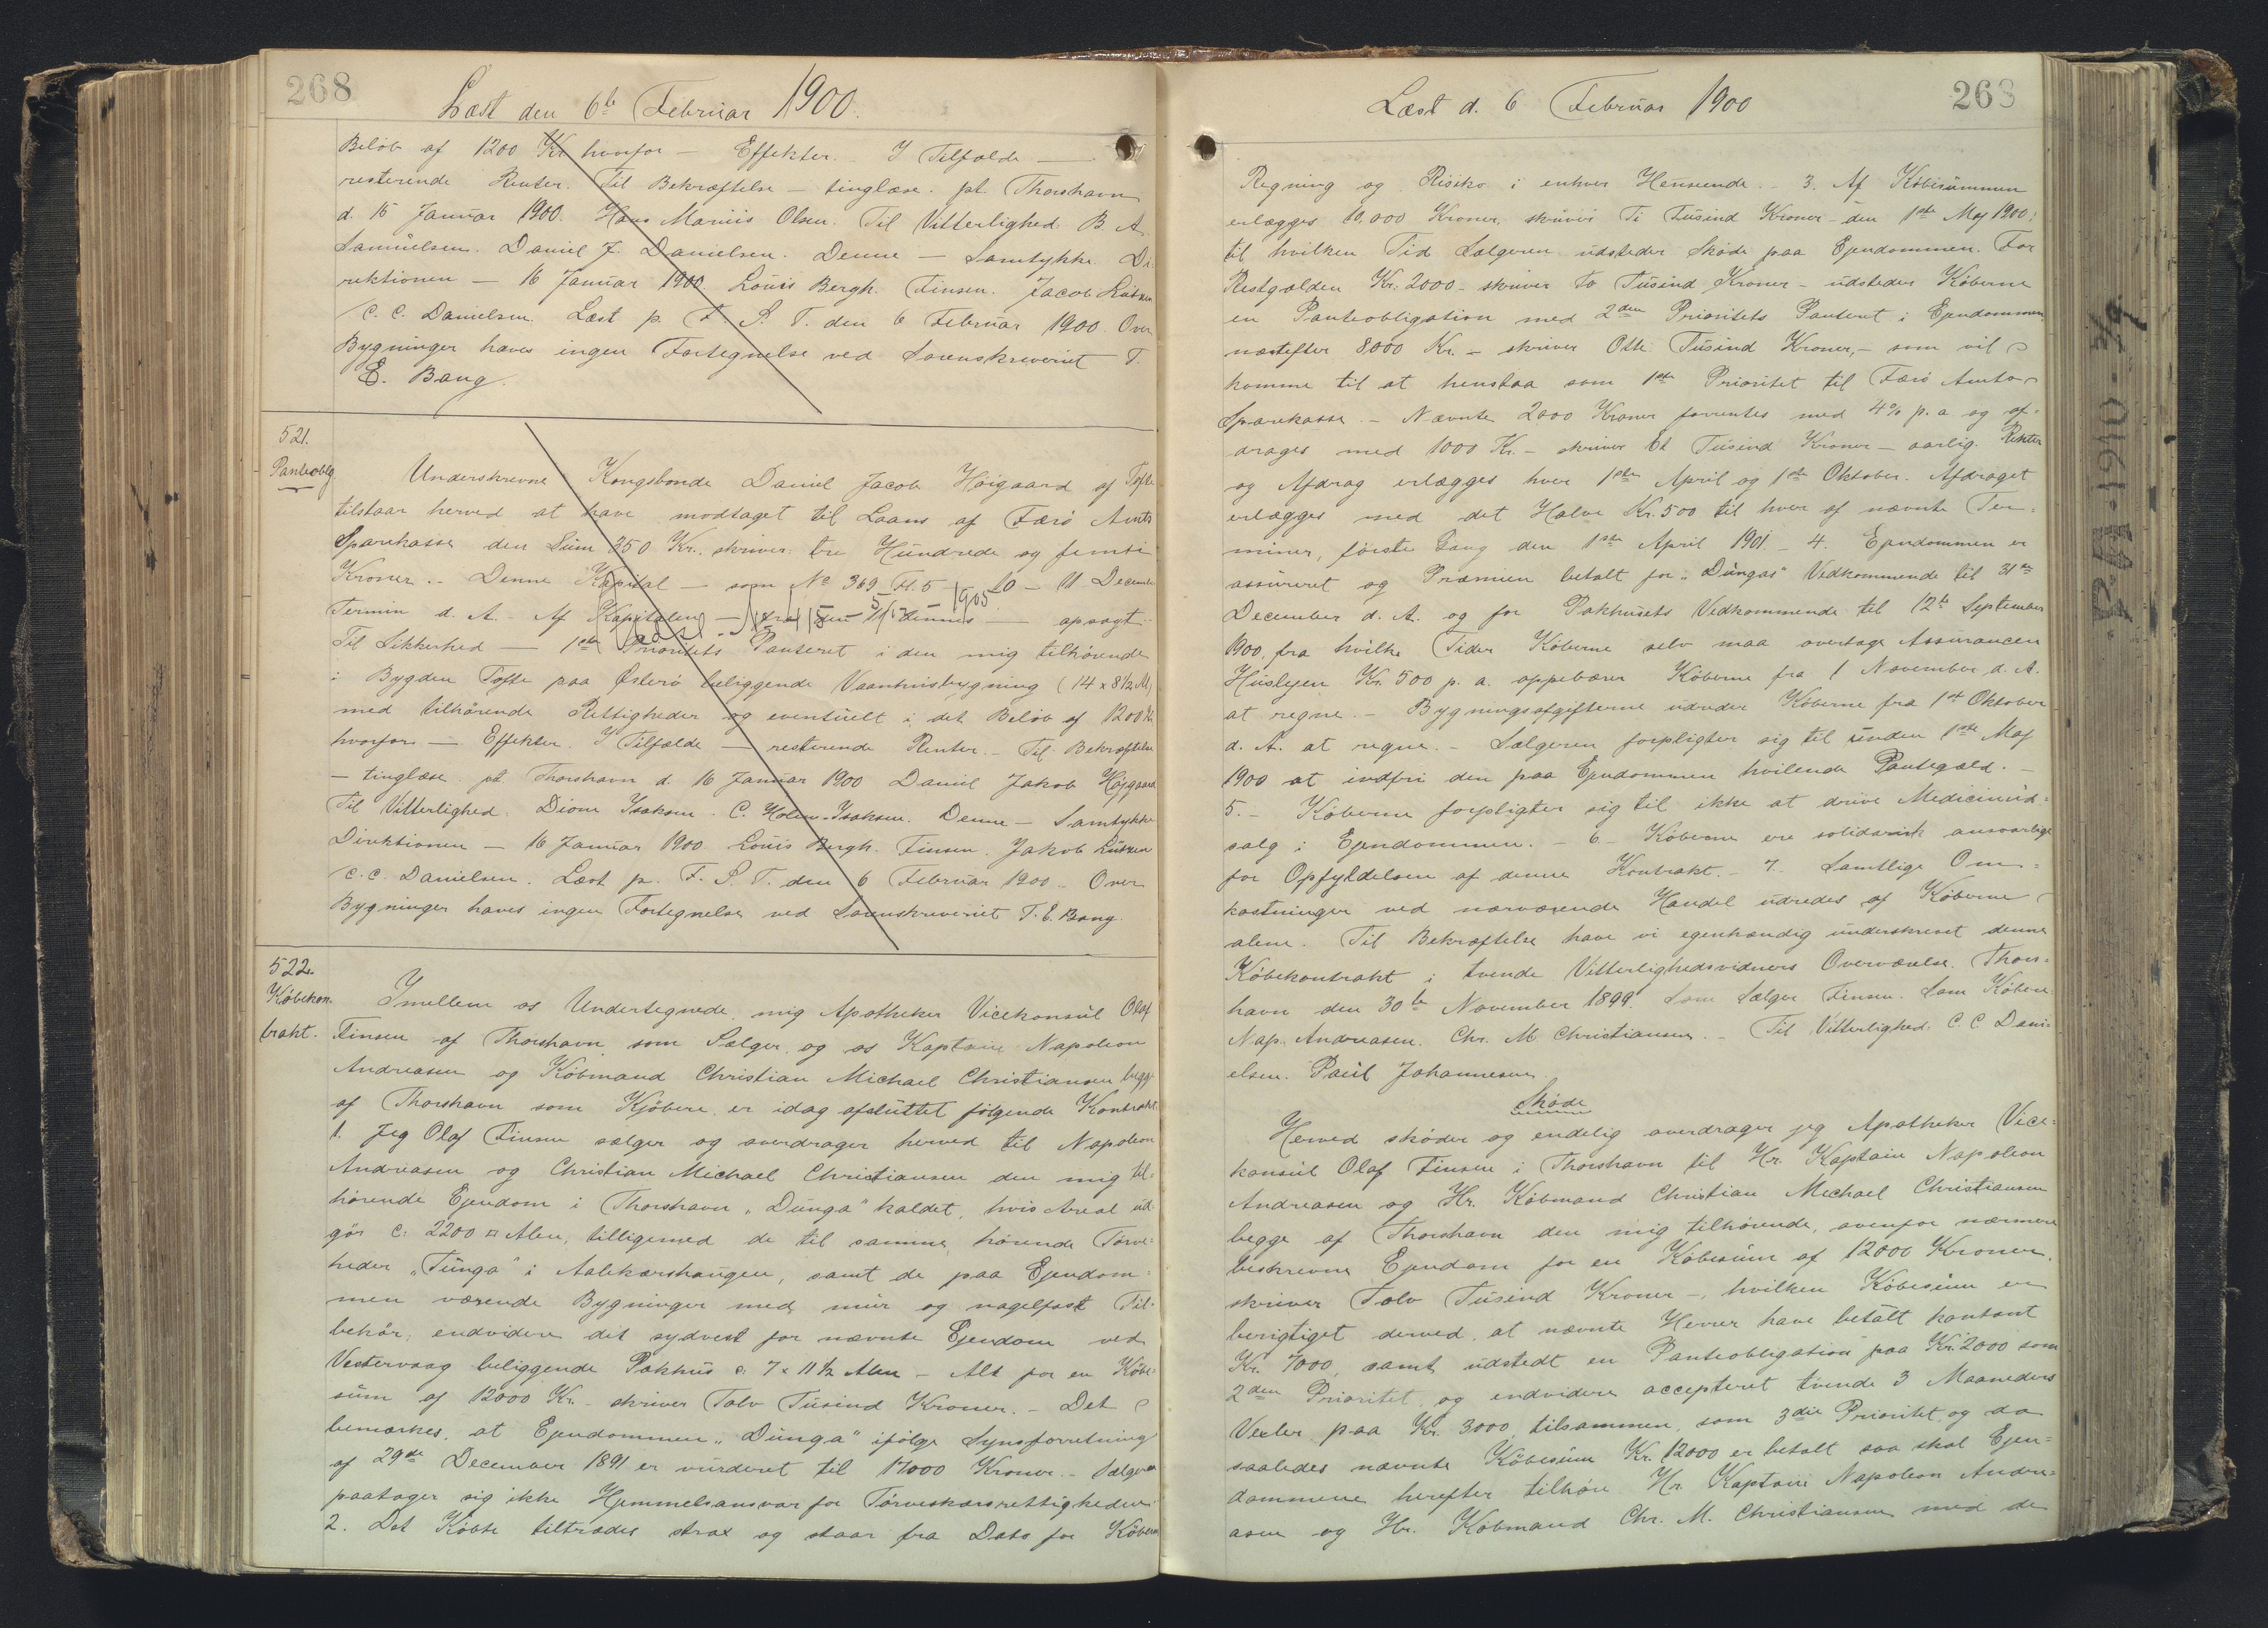 268
Læst den 6te Februar 1900.
Beløb af 1200 Kr hvorfor — Effekter. I Tilfælde —
resterende Renter. Til Bekræftelse — tinglæse. pt. Thorshavn
d. 15 Januar 1900. Hans Marius Olsen. Til Vitterlighed B. A.
Samuelsen. Daniel J. Danielsen. Denne — Samtykke Di-
rektionen — 16 Januar 1900. Louis Bergh. Finsen. Jacob Lützen
C. C. Danielsen. Læst p. F. S. T. den 6 Februar 1900. Over
Bygninger haves ingen Fortegnelse ved Sorenskriveriet T.
E. Bang.
521.
Panteoblg.
Underskrevne Kongsbonde Daniel Jacob Høigaard af Tofte
tilstaar herved at have modtaget til Laans af Færø Amts
Sparekasse den Sum 350 Kr., skriver: tre Hundrede og femti
Kroner. - Denne Kapital — som No 369 Fl. 5 — 20 — 11 December
Termin d. A. - Af Kapitalen — — opsagt.
Til Sikkerhed — 1ste Prioritets Panteret i den mig tilhørende
i Bygden Tofte paa Østerø beliggende Vaanhusbygning (14 x 8 1/2 Al)
med tilhørende Rettigheder og eventuelt i det Beløb af 1200 Kr
hvorfor — Effekter. I Tilfælde — resterende Renter. - Til Bekræftelse
— tinglæse. pt. Thorshavn d. 16 Januar 1900 Daniel Jakob Højgaard
Til Vitterlighed. Dione Isaksen. C. Holm-Isaksen. Denne — Samtykke
Direktionen — 16 Januar 1900 Louis Bergh. Finsen. Jakob Lützen
C. C. Danielsen. Læst p. F. S. T. den 6 Februar 1900. Over
Bygninger haves ingen Fortegnelse ved Sorenskriveriet T. E. Bang.
522.
Købekon-
trakt.
Imellem os Undertegnede, mig Apotheker Vicekonsul Olaf
Finsen af Thorshavn som Sælger, og os Kaptain Napoleon
Andreasen og Købmand Christian Michael Christiansen begge
af Thorshavn som Kjøbere, er idag afsluttet følgende Kontrakt.
1. Jeg Olaf Finsen sælger og overdrager herved til Napoleon
Andreasen og Christian Michael Christiansen den mig til-
hørende Ejendom i Thorshavn "Dunga" kaldet, hvis Areal ud-
gør c: 2200 □ Alen, tilligemed de til samme hørende Tørve-
heder "Tunga" i Aalekærshaugen, samt de paa Ejendom-
men værende Bygninger med mur og nagelfast Til-
behør, endvidere dit sydvest for nævnte Ejendom ved
Vestervaag beliggende Pakhus c. 7 x 11 1/2 Alen - Alt for en Købe-
sum af 12000 Kr. - skriver Tolv Tusind Kroner. - Det
bemærkes, at Ejendommen "Dunga" ifølge Synsforretning
af 29de December 1891 er vurderet til 17000 Kroner. - Sælgeren
paatager sig ikke Hjemmelsansvar for Tørveskærsrettigheder.
2. Det Købte tiltrædes strax og staar fra Dato for Købernes
263
Læst d. 6 Februar 1900
Regning og Risiko i enhver Henseende. - 3. Af Købesummen
erlægges 10,000 Kroner, skriver Ti Tusind Kroner - den 1ste Maj 1900;
til hvilken Tid Sælgeren udsteder Skøde paa Ejendommen. For
Restgælden Kr: 2000 - skriver to Tusind Kroner - udsteder Køberne
en Panteobligation med 2den Prioritets Panteret i Ejendommen
næstefter 8000 Kr. - skriver Otte Tusind Kroner, - som vil
komme til at henstaa som 1ste Prioritet til Færø Amts
Sparekasse. - Nævnte 2000 Kroner forrentes med 4% p. a. og af-
drages med 1000 Kr. - skriver Et Tusind Kroner - aarlig. Renter
og Afdrag erlægges hver 1ste April og 1ste Oktober. Afdraget
erlægges med det Halve Kr. 500 til hver af nævnte Ter-
miner, første Gang den 1ste April 1901. - 4. Ejendommen er
assureret og Præmien betalt for "Dungas" Vedkommende til 31te
December d. A. og for Pakhusets Vedkommende til 12te September
1900, fra hvilke Tider Køberne selv maa overtage Assurancen
Huslejen Kr. 500 p. a. oppebærer Køberne fra 1 November d. A.
at regne. - Bygningsafgifterne udreder Køberne fra 1st Oktober
d. A. at regne. - Sælgeren forpligter sig til inden 1ste Maj
1900 at indfri den paa Ejendommen hvilende Pantegæld. -
5. - Køberne forpligter sig til ikke at drive Medicinud-
salg i Ejendommen. - 6 - Køberne ere solidarisk ansvarlige
for Opfyldelsen af denne Kontrakt. - 7. Samtlige Om-
kostninger ved nærværende Handel udredes af Køberne
alene. Til Bekræftelse have vi egenhændig underskrevet denne
Købekontrakt i tvende Vitterlighedsvidners Overværelse. Thors-
havn den 30te November 1899. Som Sælger Finsen. Som Købere
Nap. Andreasen. Chr. M Christiansen. - Til Vitterlighed: C. C. Dani-
elsen. Paul Johannesen.
Skøde
Herved skøder og endelig overdrager jeg Apotheker Vice-
konsul Olaf Finsen i Thorshavn til Hr. Kaptain Napoleon
Andreasen og Hr. Købmand Christian Michael Christiansen
begge af Thorshavn den mig tilhørende, ovenfor nærmere
beskrevne Ejendom for en Købesum af 12000 Kroner.
skriver Tolv Tusind Kroner -, hvilken Købesum er
berigtiget derved, at nævnte Herrer have betalt kontant
Kr. 7000, samt udstedt en Panteobligation paa Kr. 2000 som
2den Prioritet og endvidere accepteret tvende 3 Maaneders
Vexler paa Kr. 3000 tilsammen, som 3die Prioritet, og da
saaledes nævnte Købesum Kr. 12000 er betalt saa skal Ejen-
dommene herefter tilhøre Hr. Kaptain Napoleon Andre-
asen og Hr. Købmand Chr. M. Christiansen med de